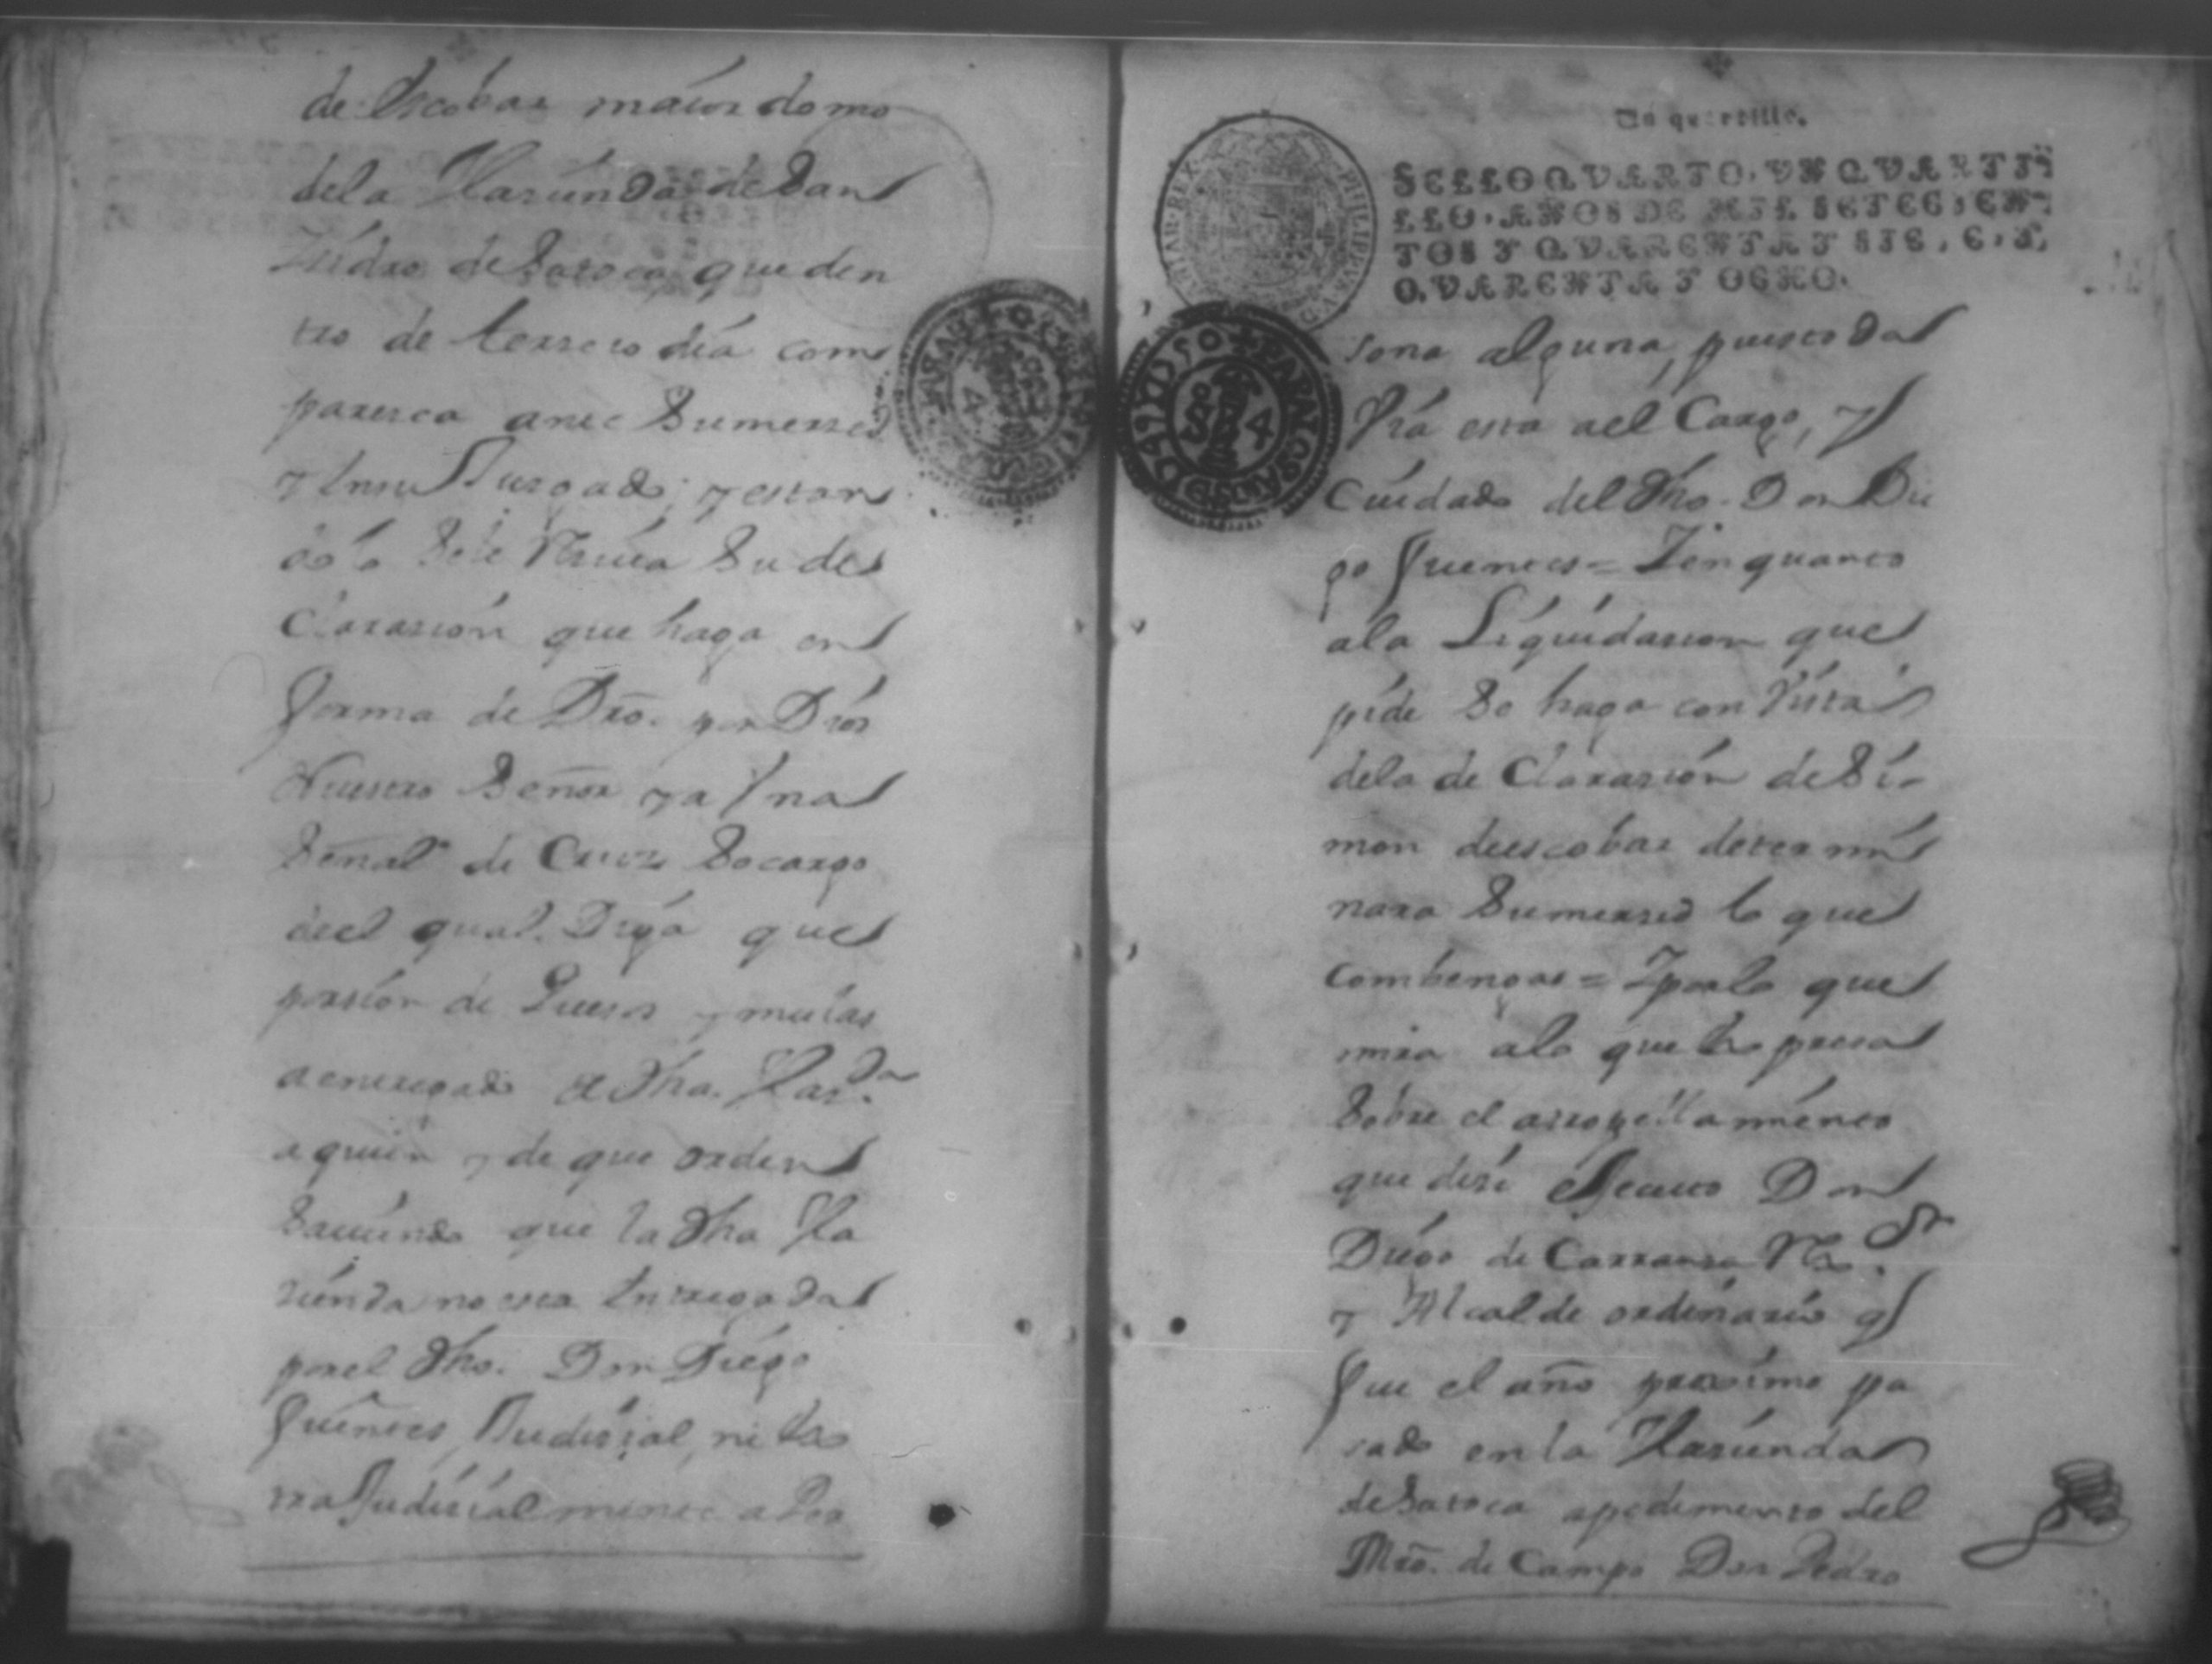 de Escobar maior domo
dela Hazienda de San
Ysidro de Saroca que den
tro de terzero dia com
paresca ante Sumerzed
y en su Jusgado, y estan
do lo Sele Resiva Su de
Clarazion que haga en
forma de Dro. por Dios
Nuestro Señor y a Una
Señal de Cruz So cargo
de el qual. Diga que
porsion de Bueies y mulas
a entregado a dha. Hazda.
a quien y de que orden
Saviendo que la dha Ha
zienda no esta Entregada
por el dho. Don Diego
fuentes Judizial, ni Ex
tra Judizialmente a Per
Un quartillo.
SELLO QVARTO, VN QVARTI
LLO, AÑOS DE MIL SETECIEN
TOS Y QVARENTA Y SIETE, Y
QVARENTA Y OCHO.
sona alguna, pues toda
Via esta a el Cargo, y
Cuidado del dho. Don Die
go fuentes = Y en quanto
ala Liquidazion que
pide Se haga con Vista
dela de Clarazion de Si-
mon de escobar determi
nara Sumerzed lo que
combenga = Y por lo que
mira alo que Expresa
Sobre el atropellamiento
que dize Executo Don
Diego de Carranza Rexor.
y Alcalde ordinario q
fue el año proximo pa
sado en la Hazienda
de Saroca a pedimento del
Mro. de Campo Don Pedro